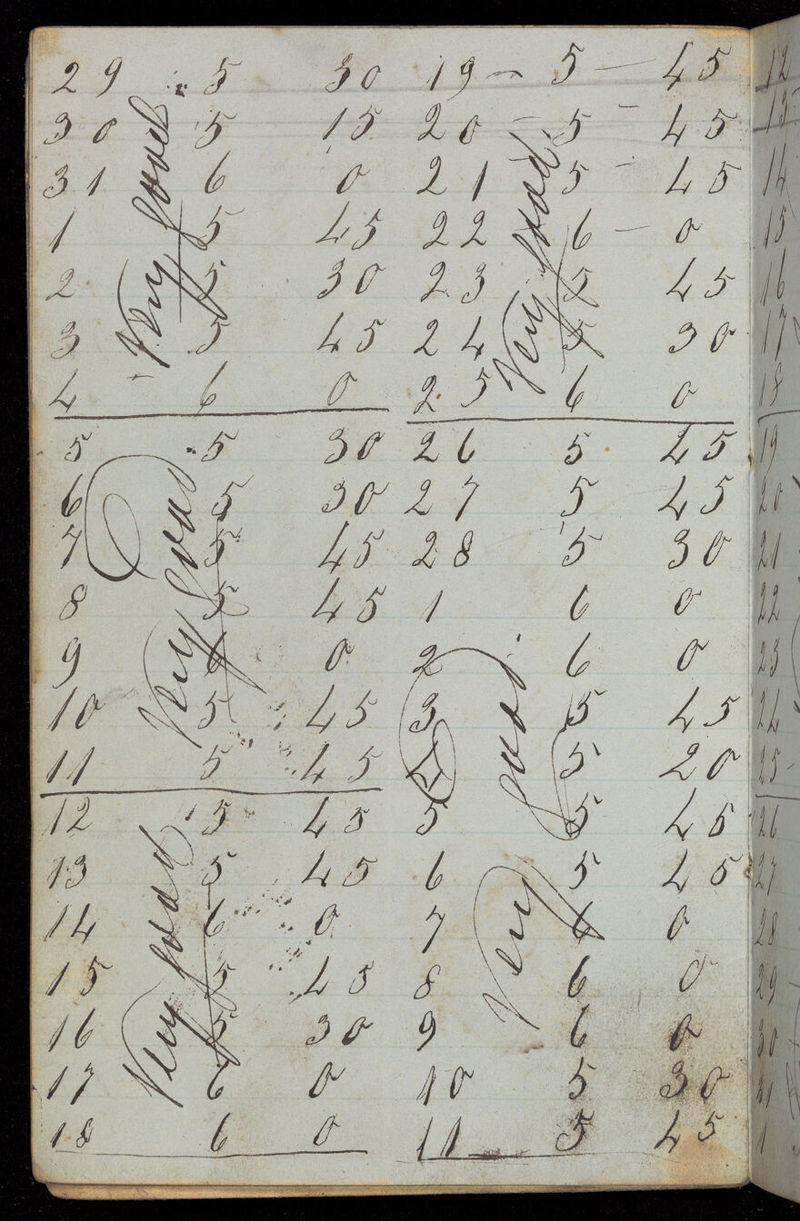 29 5 30
30 5 15
31 6 0
1 5 45
2 5 30
3 5 45
4 6 0
Very good
5 5 30
6 5 30
7 5 45
8 5 45
9 6 0
10 5 45
11 5 45
Very good
12 5 45
13 5 45
14 6 0
15 5 45
16 5 30
17 6 0
18 6 0
Very good
19 – 5 – 45
20 – 5 – 45
21 5 – 45
22 6 – 0
23 5 45
24 5 30
25 6 0
Very good
26 5 45
27 5 45
28 5 30
1 6 0
2 6 0
3 5 45
4 5 20
5 5 45
6 5 45
7 6 0
8 6 0
9 6 0
10 5 30
11 5 45
Very good
12
13
14
15
16
17
18
19
20
21
22
23
24
25
26
27
28
29
30
31
1